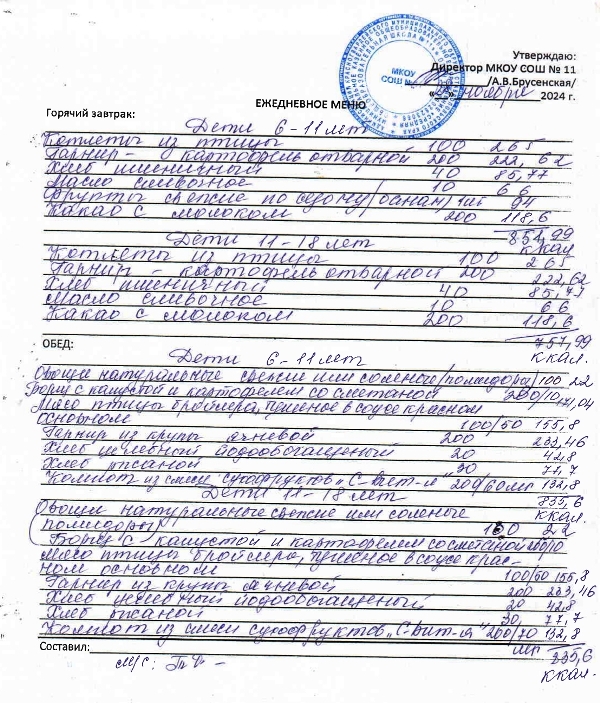 Утверждаю:
Директор МКОУ СОШ № 11
/А.В.Брусенская/
ноября 2024 г.
МКОУ
СОШ №
ЕЖЕДНЕВНОЕ МЕНЮ
Горячий завтрак:
Дети 6-11 лет
Котлеты из птицы 100 265
Гарнир - картофель отварной 200 222,62
Хлеб пшеничный 40 85,77
Масло сливочное 10 66
Фрукты свежие по сезону /банан/ 1шт 94
Какао с молоком 200 118,6
851,99
Дети 11-18 лет ккал
Котлеты из птицы 100 265
Гарнир - картофель отварной 200 222,62
Хлеб пшеничный 40 85,77
Масло сливочное 10 66
Какао с молоком 200 118,6
757,99
ОБЕД: ккал.
Дети 6-11 лет
Овощи натуральные свежие или соленые /помидоры/ 100 22
Борщ с капустой и картофелем со сметаной 200/10 171,04
Мясо птицы бройлера, тушеное в соусе красном
основном 100/50 155,8
Гарнир из крупы ячневой 200 233,46
Хлеб целебный йодообогащенный 20 42,8
Хлеб ржаной 30 77,7
Компот из смеси сухофруктов "С-Вит-я" 200/60мг 132,8
Дети 11-18 лет 835,6
Овощи натуральные свежие или соленые ккал.
/помидоры/ 100 22
Борщ с капустой и картофелем со сметаной
Мясо птицы бройлера, тушеное в соусе крас-
ном основном 100/50 155,8
Гарнир из крупы ячневой 200 233,46
Хлеб целебный йодообогащенный 20 42,8
Хлеб ржаной 30 77,7
Компот из смеси сухофруктов "С-Вит-я" 200/70 132,8
мг
Составил: 835,6
м/с: ккал.